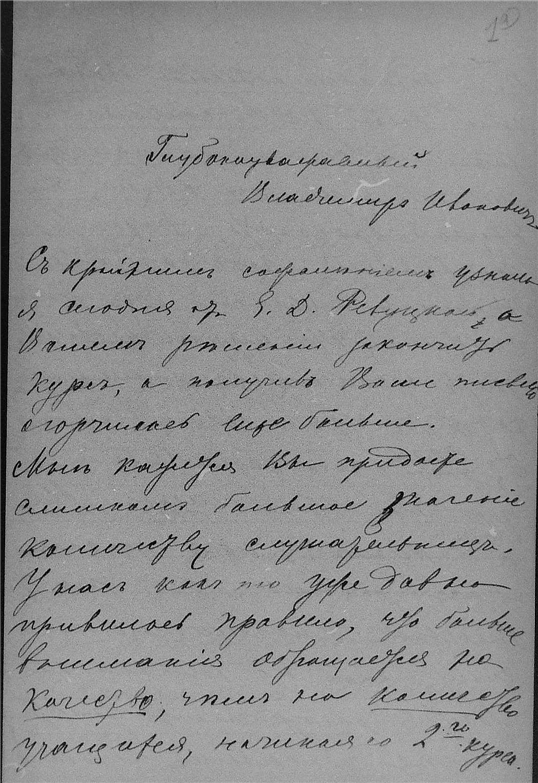 1а
Глубокоуважаемый
Владимiръ Ивановичъ
Съ крайнимъ сожалѣнiемъ узналъ
я сегодня отъ Е. Д. Ревуцкой, о
Вашемъ рѣшенiи закончить
курсъ, а получивъ Ваше письмо
огорчился еще больше.
Мнѣ кажется Вы придаете
слишкомъ большое значенiе
количеству слушательницъ.
У насъ какъ то уже давно
привилось правило, что больше
вниманiя обращается на
качество, чѣмъ на количество
учащихся, начиная со 2-го курса.